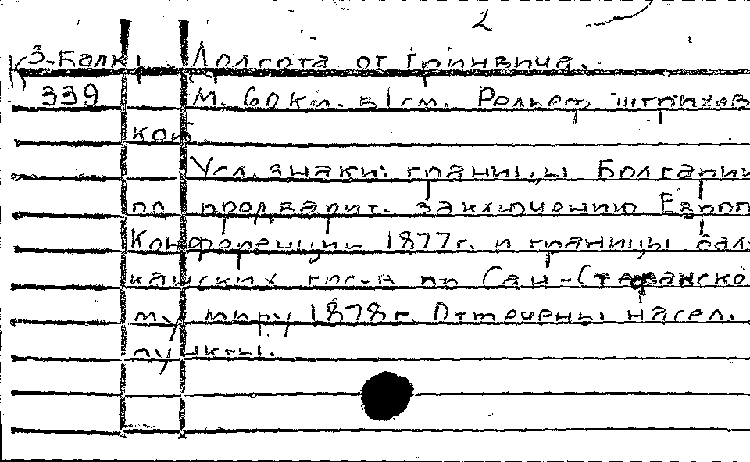 2
З-Балк. Долгота от Гринвича.
339 М. 60 км. в 1 см. Рельеф штрихов
кой
Усл. знаки: границы Болгарии
по предварит. заключению Европ.
Конференции 1877 г. и границы бал-
канских гос-в по Сан-Стефанско
му миру 1878 г. Отмечены насел.
пункты.